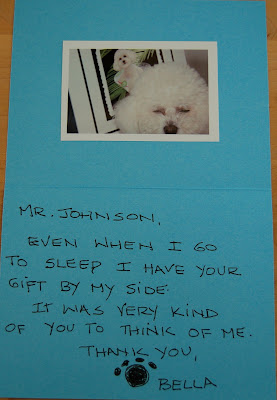 MR. JOHNSON,
EVEN WHEN I GO
TO SLEEP I HAVE YOUR
GIFT BY MY SIDE.
IT WAS VERY KIND
OF YOU TO THINK OF ME.
THANK YOU,
BELLA